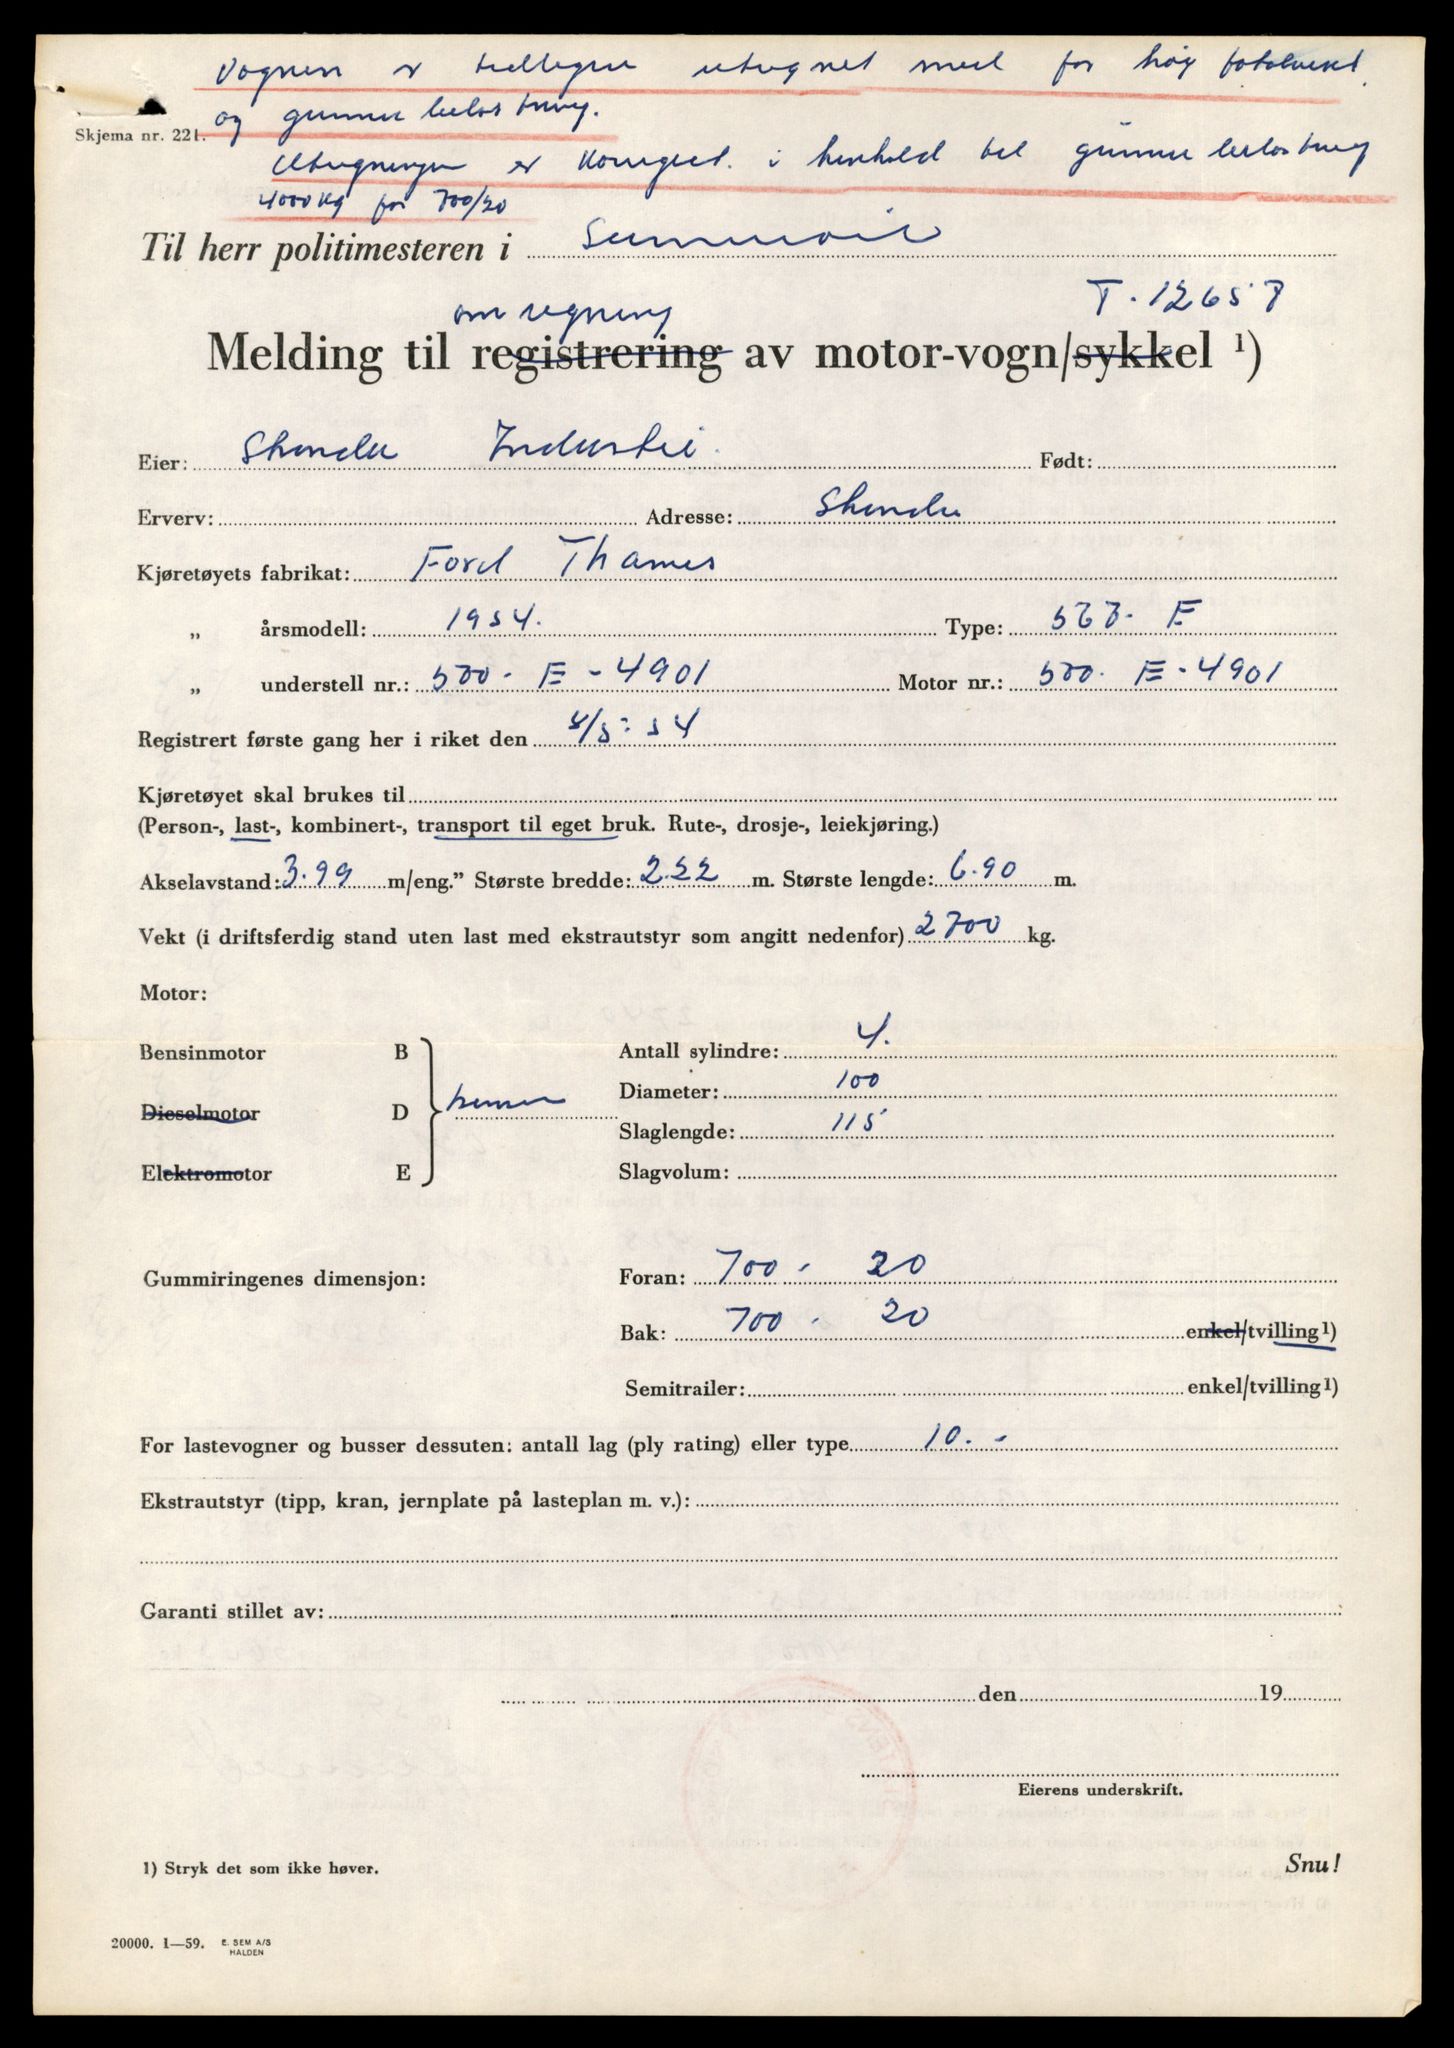 Vognen er tidligere utregnet med for høg totalvekt
og gummibelastning.
Skjema nr. 221.
Utregningen er korrigert i henhold til gummibelastning
4000 kg for 700/20
Til herr politimesteren i Sunnmøre
T-12657
omregning
Melding til registrering av motor-vogn/sykkel ¹)
Eier: Industri Født:
Erverv: Adresse:
Kjøretøyets fabrikat: Ford Thames
„ årsmodell: 1954. Type: E
„ understell nr.: 500-E-4901 Motor nr.: 500-E-4901
Registrert første gang her i riket den
Kjøretøyet skal brukes til
(Person-, last-, kombinert-, transport til eget bruk. Rute-, drosje-, leiekjøring.)
Akselavstand: 3.99 m/eng.” Største bredde: 2.22 m. Største lengde: 6.90 m.
Vekt (i driftsferdig stand uten last med ekstrautstyr som angitt nedenfor) 2700 kg.
Motor:
Bensinmotor B Antall sylindre: 4.
Diameter: 100
Dieselmotor D
Slaglengde: 115
Elektromotor E Slagvolum:
Gummiringenes dimensjon: Foran: 700-20
Bak: 700-20 enkel/tvilling¹)
Semitrailer: enkel/tvilling¹)
For lastevogner og busser dessuten: antall lag (ply rating) eller type 10.-
Ekstrautstyr (tipp, kran, jernplate på lasteplan m. v.):
Garanti stillet av:
den 19
Eierens underskrift.
1) Stryk det som ikke høver.
Snu!
20000. 1—59. E. SEM A/S
HALDEN